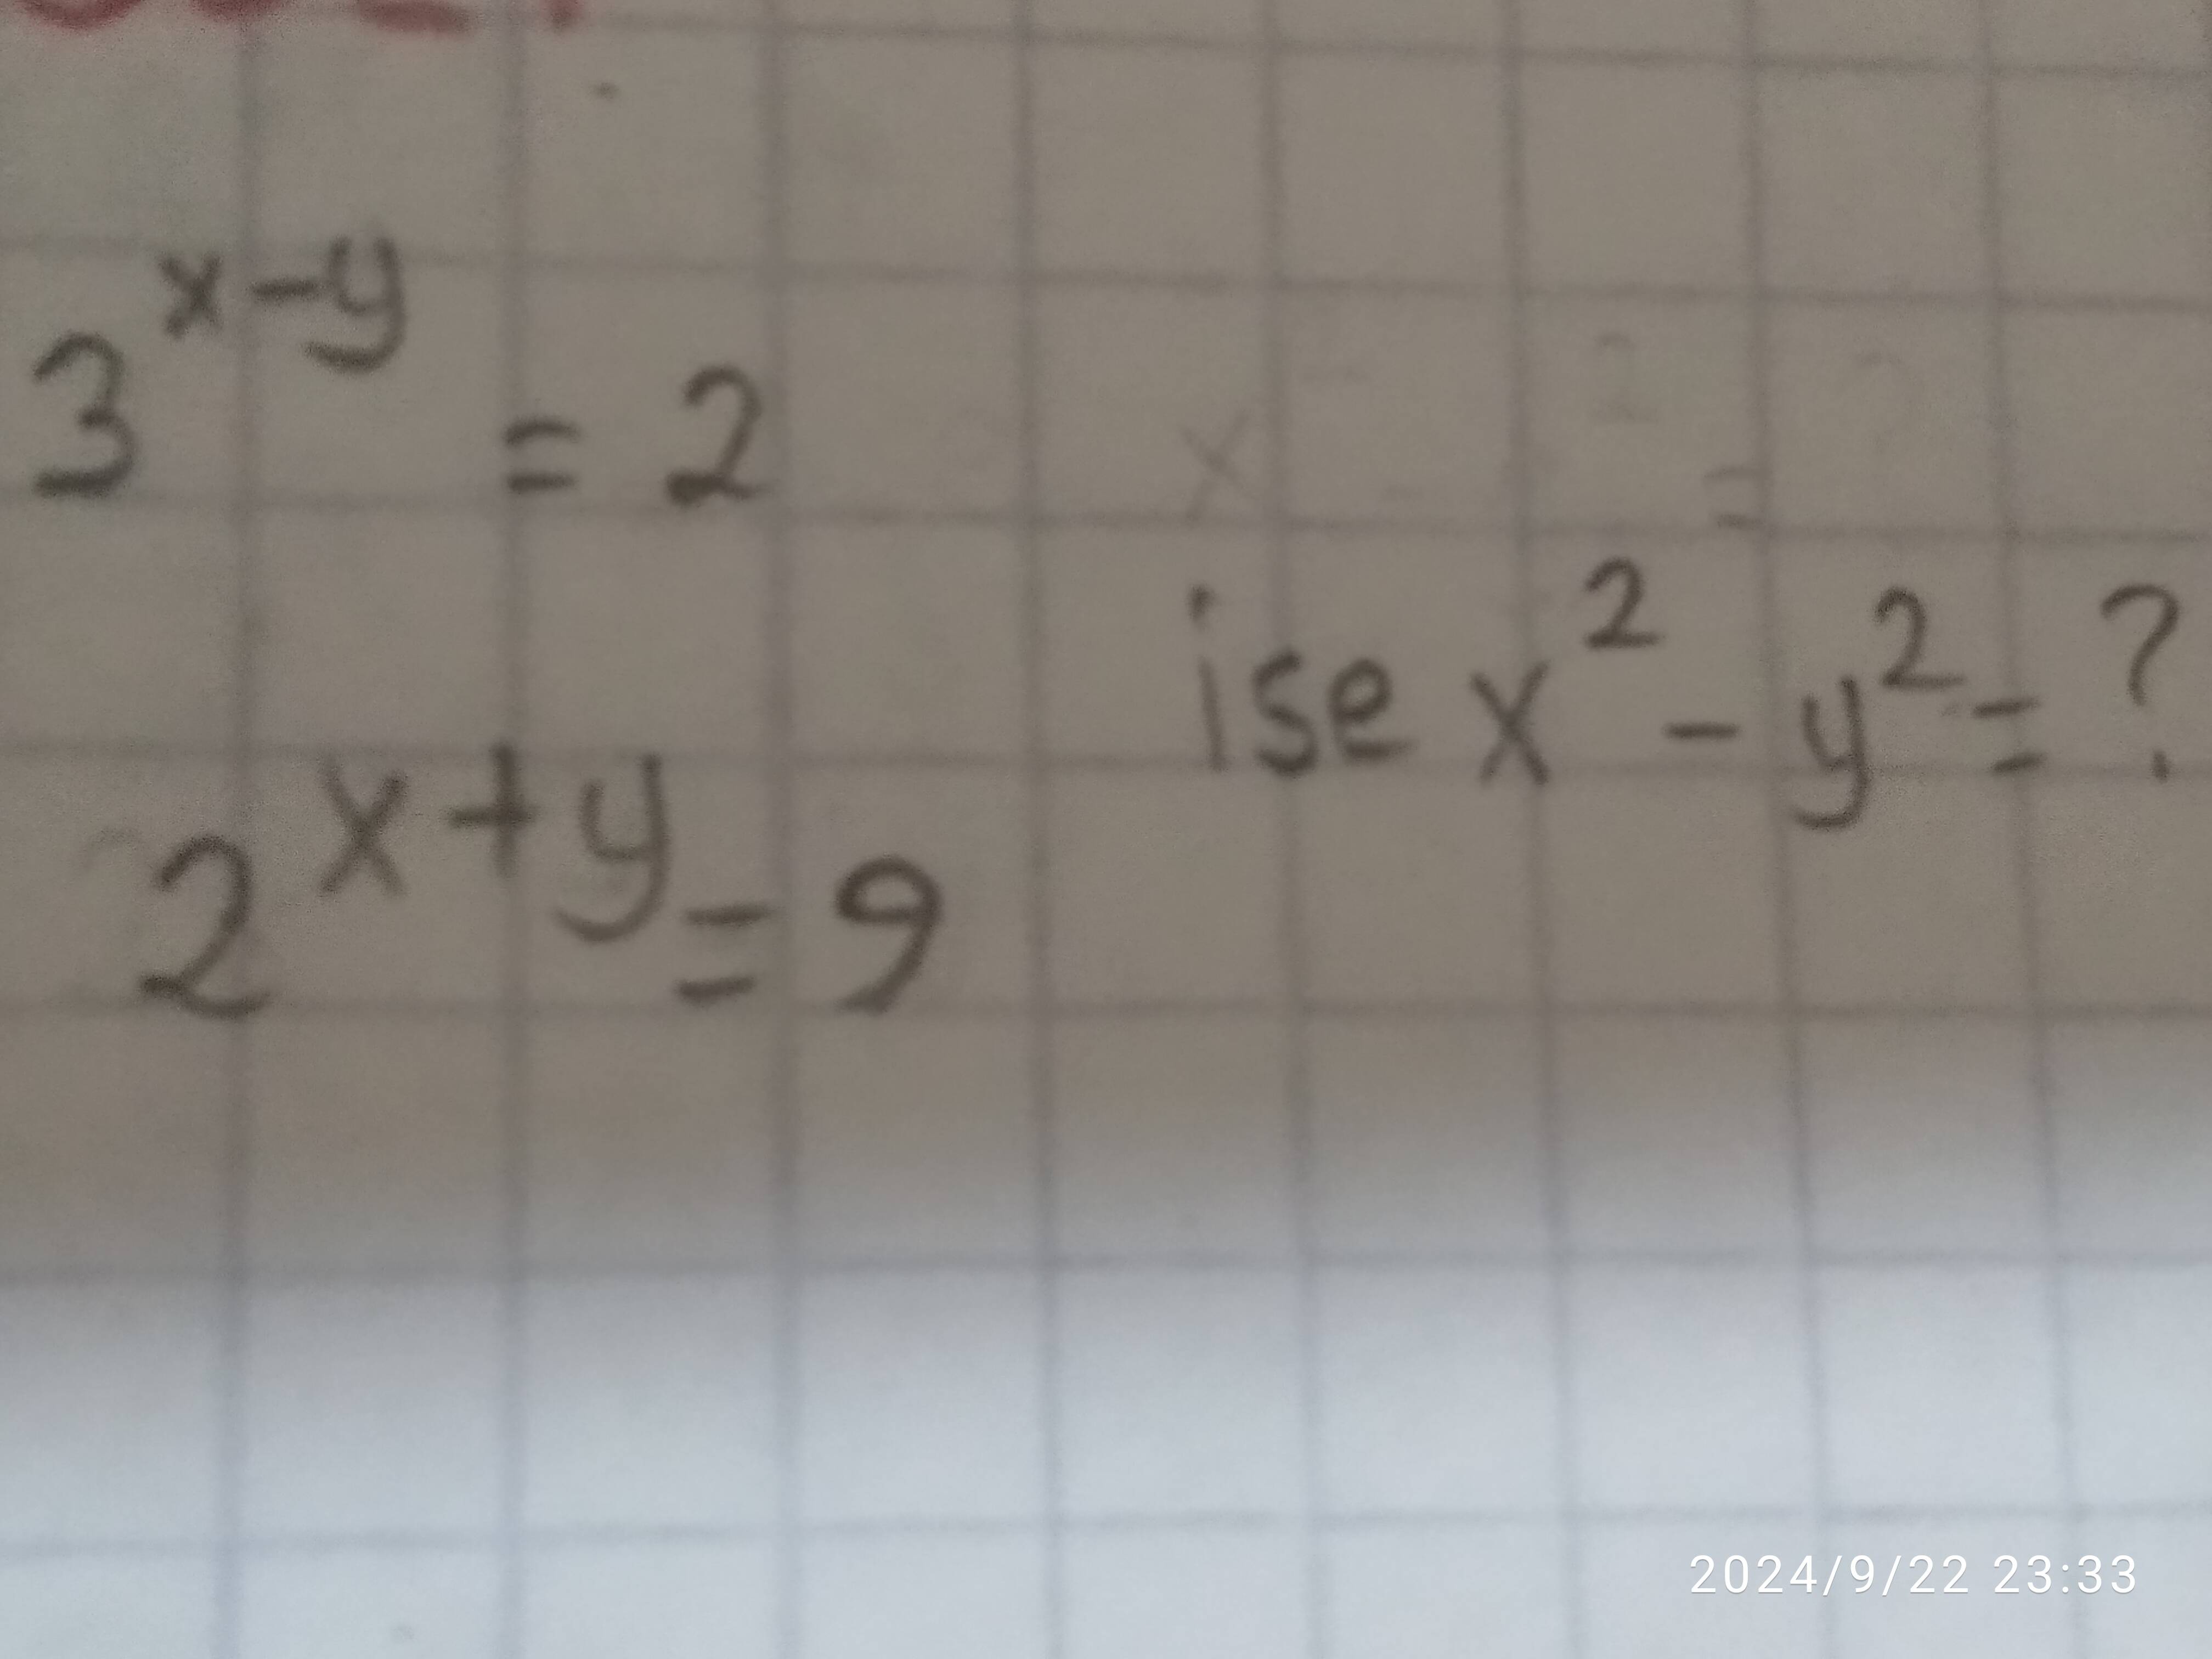 3^(x-y) = 2
ise x² - y² = ?
2^(x+y) = 9
2024/9/22 23:33